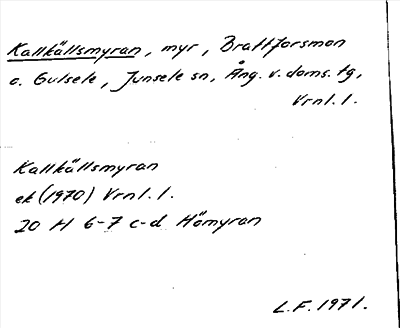 Kallkällsmyran, myr, Brattforsmon
o. Gulsele, Junsele sn, Ång. v. doms. tg,
Vrnl. l.
Kallkällsmyran
ek (1970) Vrnl. l.
20 H 6-7 c-d Hömyran
L.F. 1971.